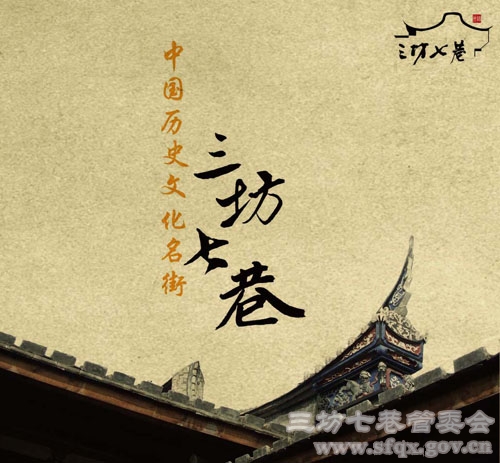 三坊七巷
中国历史文化名街
三坊七巷
三坊七巷管委会
www.sfqx.gov.cn